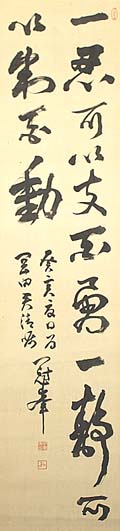 一忍可以支百勇一靜可
以制百動
癸亥夏日為
田君清嘱
冠峯